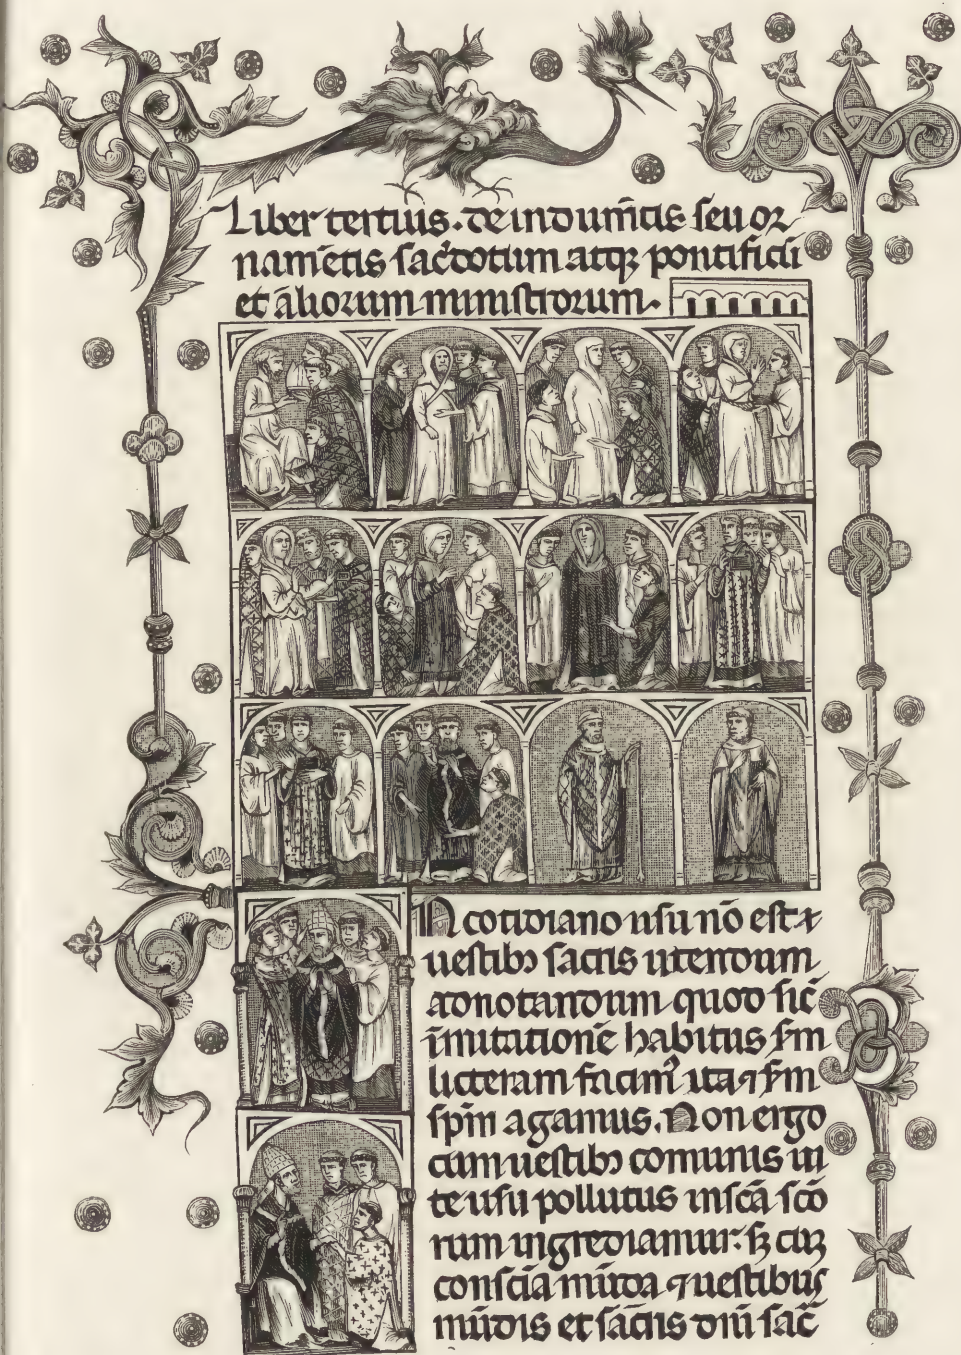 Liber tertius. de indum̄tis seu or
nam̄etis sac̄dotum atq₃ pontificū
et alioꝛum ministroꝛum.
In cotidiano usu nō est ⁊
uestib₉ sacris utendum
adnotandum quod sic̄
imutationē habitus ẜm
licteram facim⁹ ita ⁊ ẜm
sp̄m agamus. Non ergo
cum uestib₉ comunis ui
te usu pollutus in sc̄a sc̄o
rum ingrediamur. sꝫ cuꝫ
consc̄ia mūda ⁊ uestibus
mūdis et sāctis dn̄i sac̄